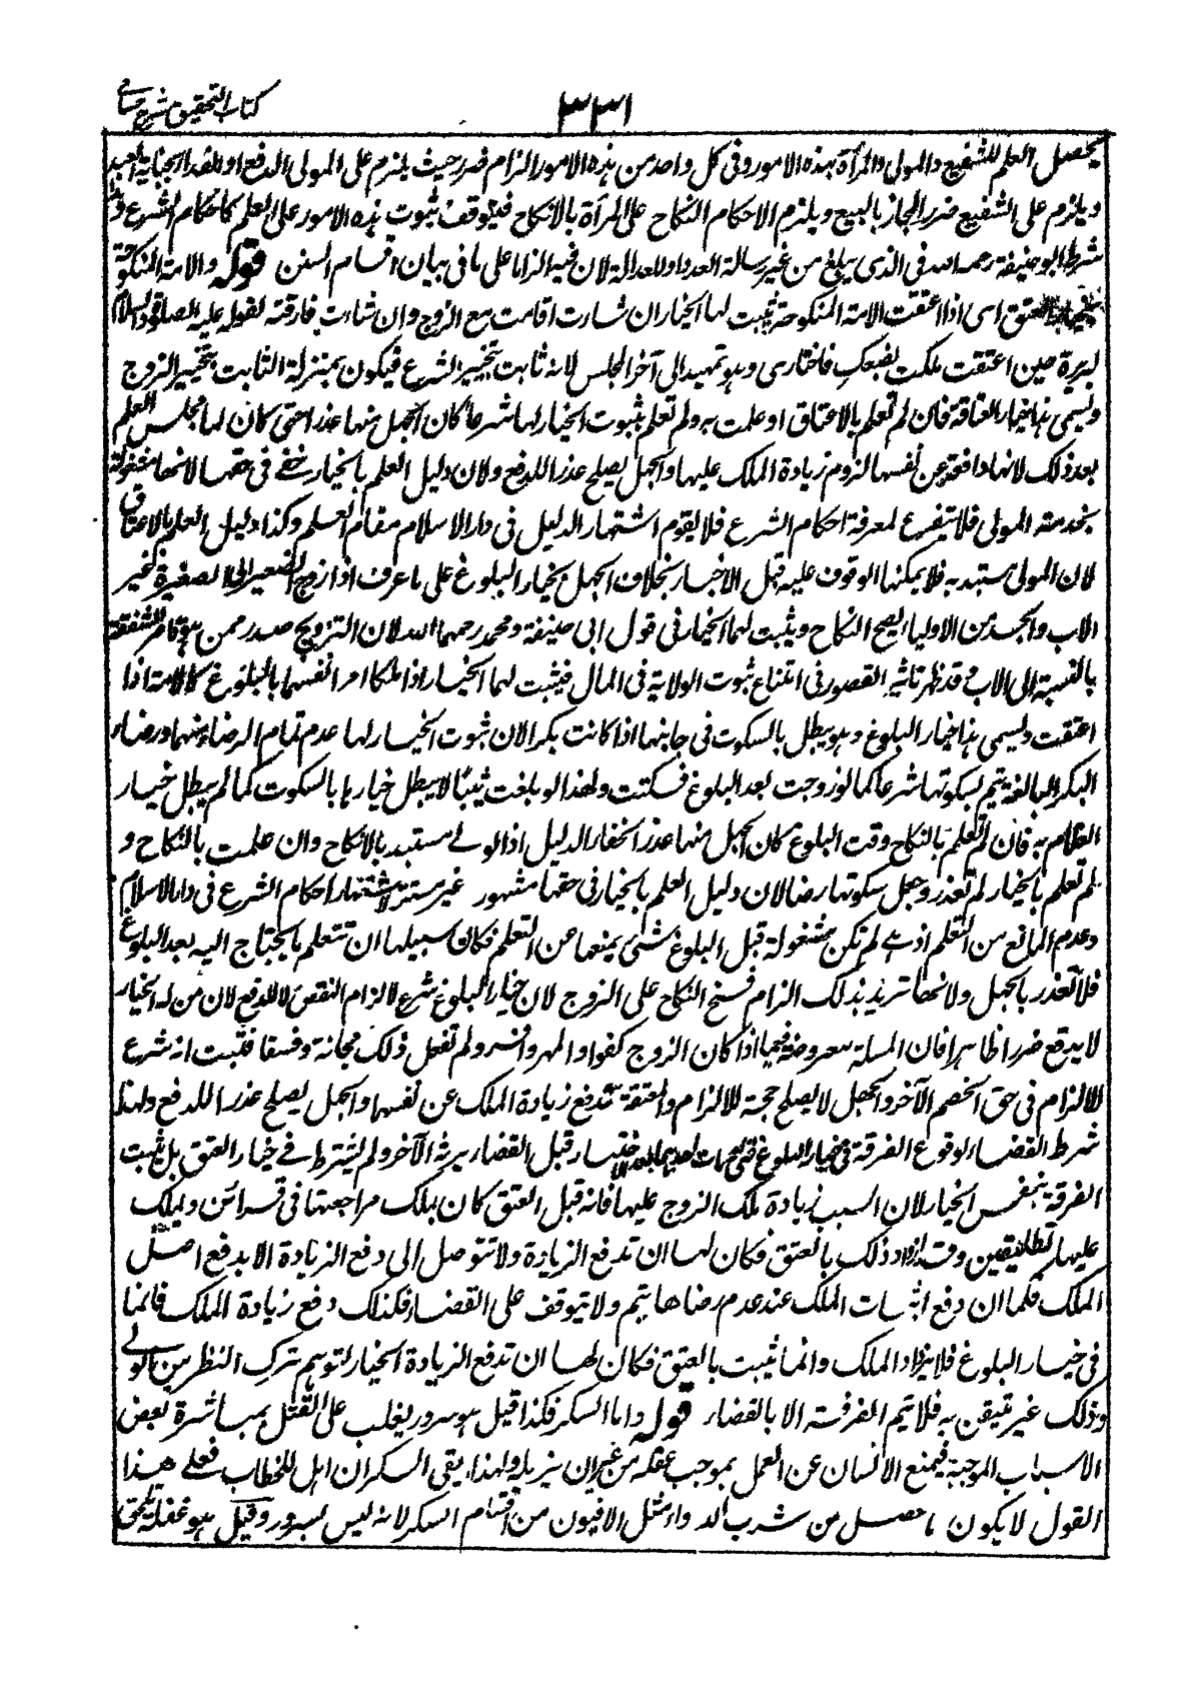 كتاب التحقيق شرح حسامى
٣٣١
يحصل العلم للشفيع والمولى والمرأة بهذه الامور وفى كل واحد من هذه الامور الزام ضرر حيث يلزم على المولى الدفع او الفداء بجناية العبد
ويلزم على الشفيع ضرر الجار بالبيع ويلزم الاحكام النكاح على المرأة بالانكاح فيتوقف ثبوت هذه الامور على العلم كاحكام الشرع
شرط ابو حنيفة رحمه الله فى الذى يبلغ من غير رسالة العدد او العدالة لان فيه الزاما على ما فى بيان اقسام السنن قوله والامة المنكوحة
العتق اى اذا اعتقت الامة المنكوحة يثبت لها الخيار ان شاءت اقامت مع الزوج وان شاءت فارقته لقوله عليه الصلوة والسلام
لبريرة حين اعتقت ملكت بضعك فاختارى وهو تمهيد الى آخر المجلس لانه ثابت بتخيير الشرع فيكون بمنزلة الثابت بتخيير الزوج
ويسمى هذا خيار العتاقة فان لم تعلم بالاعتاق او علمت به ولم تعلم بثبوت الخيار لها شرعا كان الجهل منها عذرا حتى كان لها مجلس العلم
بعد ذلك لانها دافعة عن نفسها لزوم زيادة الملك عليها والجهل يصلح عذرا للدفع ولان دليل العلم بالخيار خفى فى حقها لانها مشغولة
بخدمة المولى فلا تتفرغ لمعرفة احكام الشرع فلا يقوم اشتهار الدليل فى دار الاسلام مقام العلم وكذا دليل العلم بالاعتاق
لان المولى مستبد به فلا يمكنها الوقوف عليه قبل الاخبار بخلاف الجهل بخيار البلوغ على ما عرف اذا زوج الصغير او الصغيرة غير
الاب والجد من الاولياء يصح النكاح ويثبت لهما الخيار فى قول ابى حنيفة ومحمد رحمهما الله لان التزويج صدر ممن هو قاصر الشفقة
بالنسبة الى الاب وقد ظهر تاثير القصور فى امتناع ثبوت الولاية فى المال فيثبت لهما الخيار اذا ملكا امر انفسهما بالبلوغ كالامة اذا
اعتقت ويسمى هذا خيار البلوغ وهو يبطل بالسكوت فى جانبها اذا كانت بكرا لان ثبوت الخيار لها عدم تمام الرضاء منها ورضاء
البكر البالغة يتم بسكوتها شرعا كما لو زوجت بعد البلوغ فسكتت ولهذا لو بلغت ثيبا لا يبطل خيارها بالسكوت كما لم يبطل خيار
الغلام به فان لم تعلم بالنكاح وقت البلوغ كان الجهل منها عذرا لخفاء الدليل اذ الولى مستبد بالانكاح وان علمت بالنكاح و
لم تعلم بالخيار لم تعذر وجعل سكوتها رضا لان دليل العلم بالخيار فى حقها مشهور غير مستتر لاشتهار احكام الشرع فى دار الاسلام
وعدم المانع من التعلم اذ هى لم تكن مشغولة قبل البلوغ بشئ يمنعها عن التعلم فكان سبيلها ان تتعلم ما يحتاج اليه بعد البلوغ
فلا تعذر بالجهل ولانها تريد بذلك الزام فسخ النكاح على الزوج لان خيار البلوغ شرع لالزام النقض لا للدفع لان من له الخيار
لا يدفع ضررا ظاهرا فان المسئلة مفروضة فيما اذا كان الزوج كفوا والمهر وافر ولم تفعل ذلك مجانة وفسقا فثبت انه شرع
للالزام فى حق الخصم الآخر والجهل لا يصلح حجة للالزام والمعتقة تدفع زيادة الملك عن نفسها والجهل يصلح عذرا للدفع ولهذا
شرط القضاء لوقوع الفرقة فى خيار البلوغ حتى لو مات احدهما بعد الاختيار قبل القضاء يرثه الآخر ولم يشترط فى خيار العتق بل يثبت
الفرقة بنفس الخيار لان السبب زيادة ملك الزوج عليها فانه قبل العتق كان يملك مراجعتها فى قرئين ويملك
عليها تطليقتين وقد ازداد ذلك بالعتق فكان لها ان تدفع الزيادة ولا تتوصل الى دفع الزيادة الا بدفع اصل
الملك فكما ان دفع اثبات الملك عند عدم رضاها يتم ولا يتوقف على القضاء فكذلك دفع زيادة الملك فاما
فى خيار البلوغ فلا يزداد الملك وانما يثبت بالعتق فكان لها ان تدفع الزيادة الخيار لتوهم ترك النظر من الولى
وذلك غير متيقن به فلا يتم الفرقة الا بالقضاء قوله واما السكر فكذا قيل هو سرور يغلب على العقل بمباشرة بعض
الاسباب الموجبة فيمنع الانسان عن العمل بموجب عقله من غير ان يزيله ولهذا بقى السكران اهلا للخطاب فعلى هذا
القول لا يكون ما حصل من شرب الدواء مثل الافيون من اقسام السكر لانه ليس بسرور وقيل هو غفلة تلحق